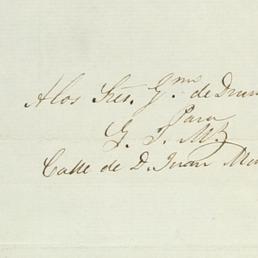 A los Sres. G.mo de Drus
Para
G. J. M.
Calle de D. Juan Ma